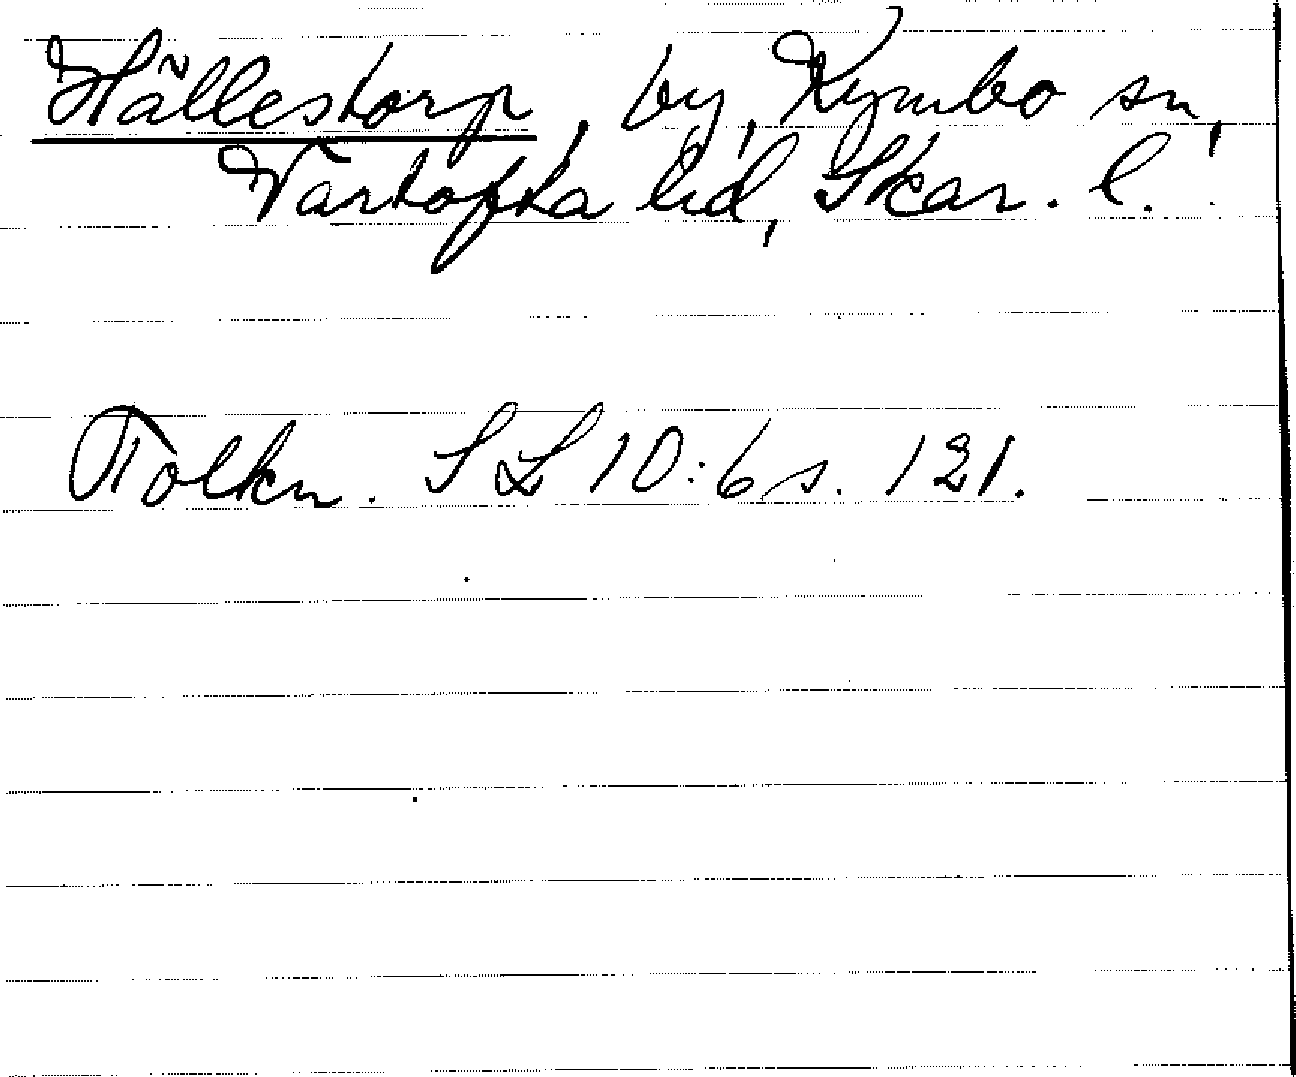 Hällestorp, by, Kymbo sn,
Vartofta hd, Skar. l.
Tolkn. SL 10:6 s. 121.